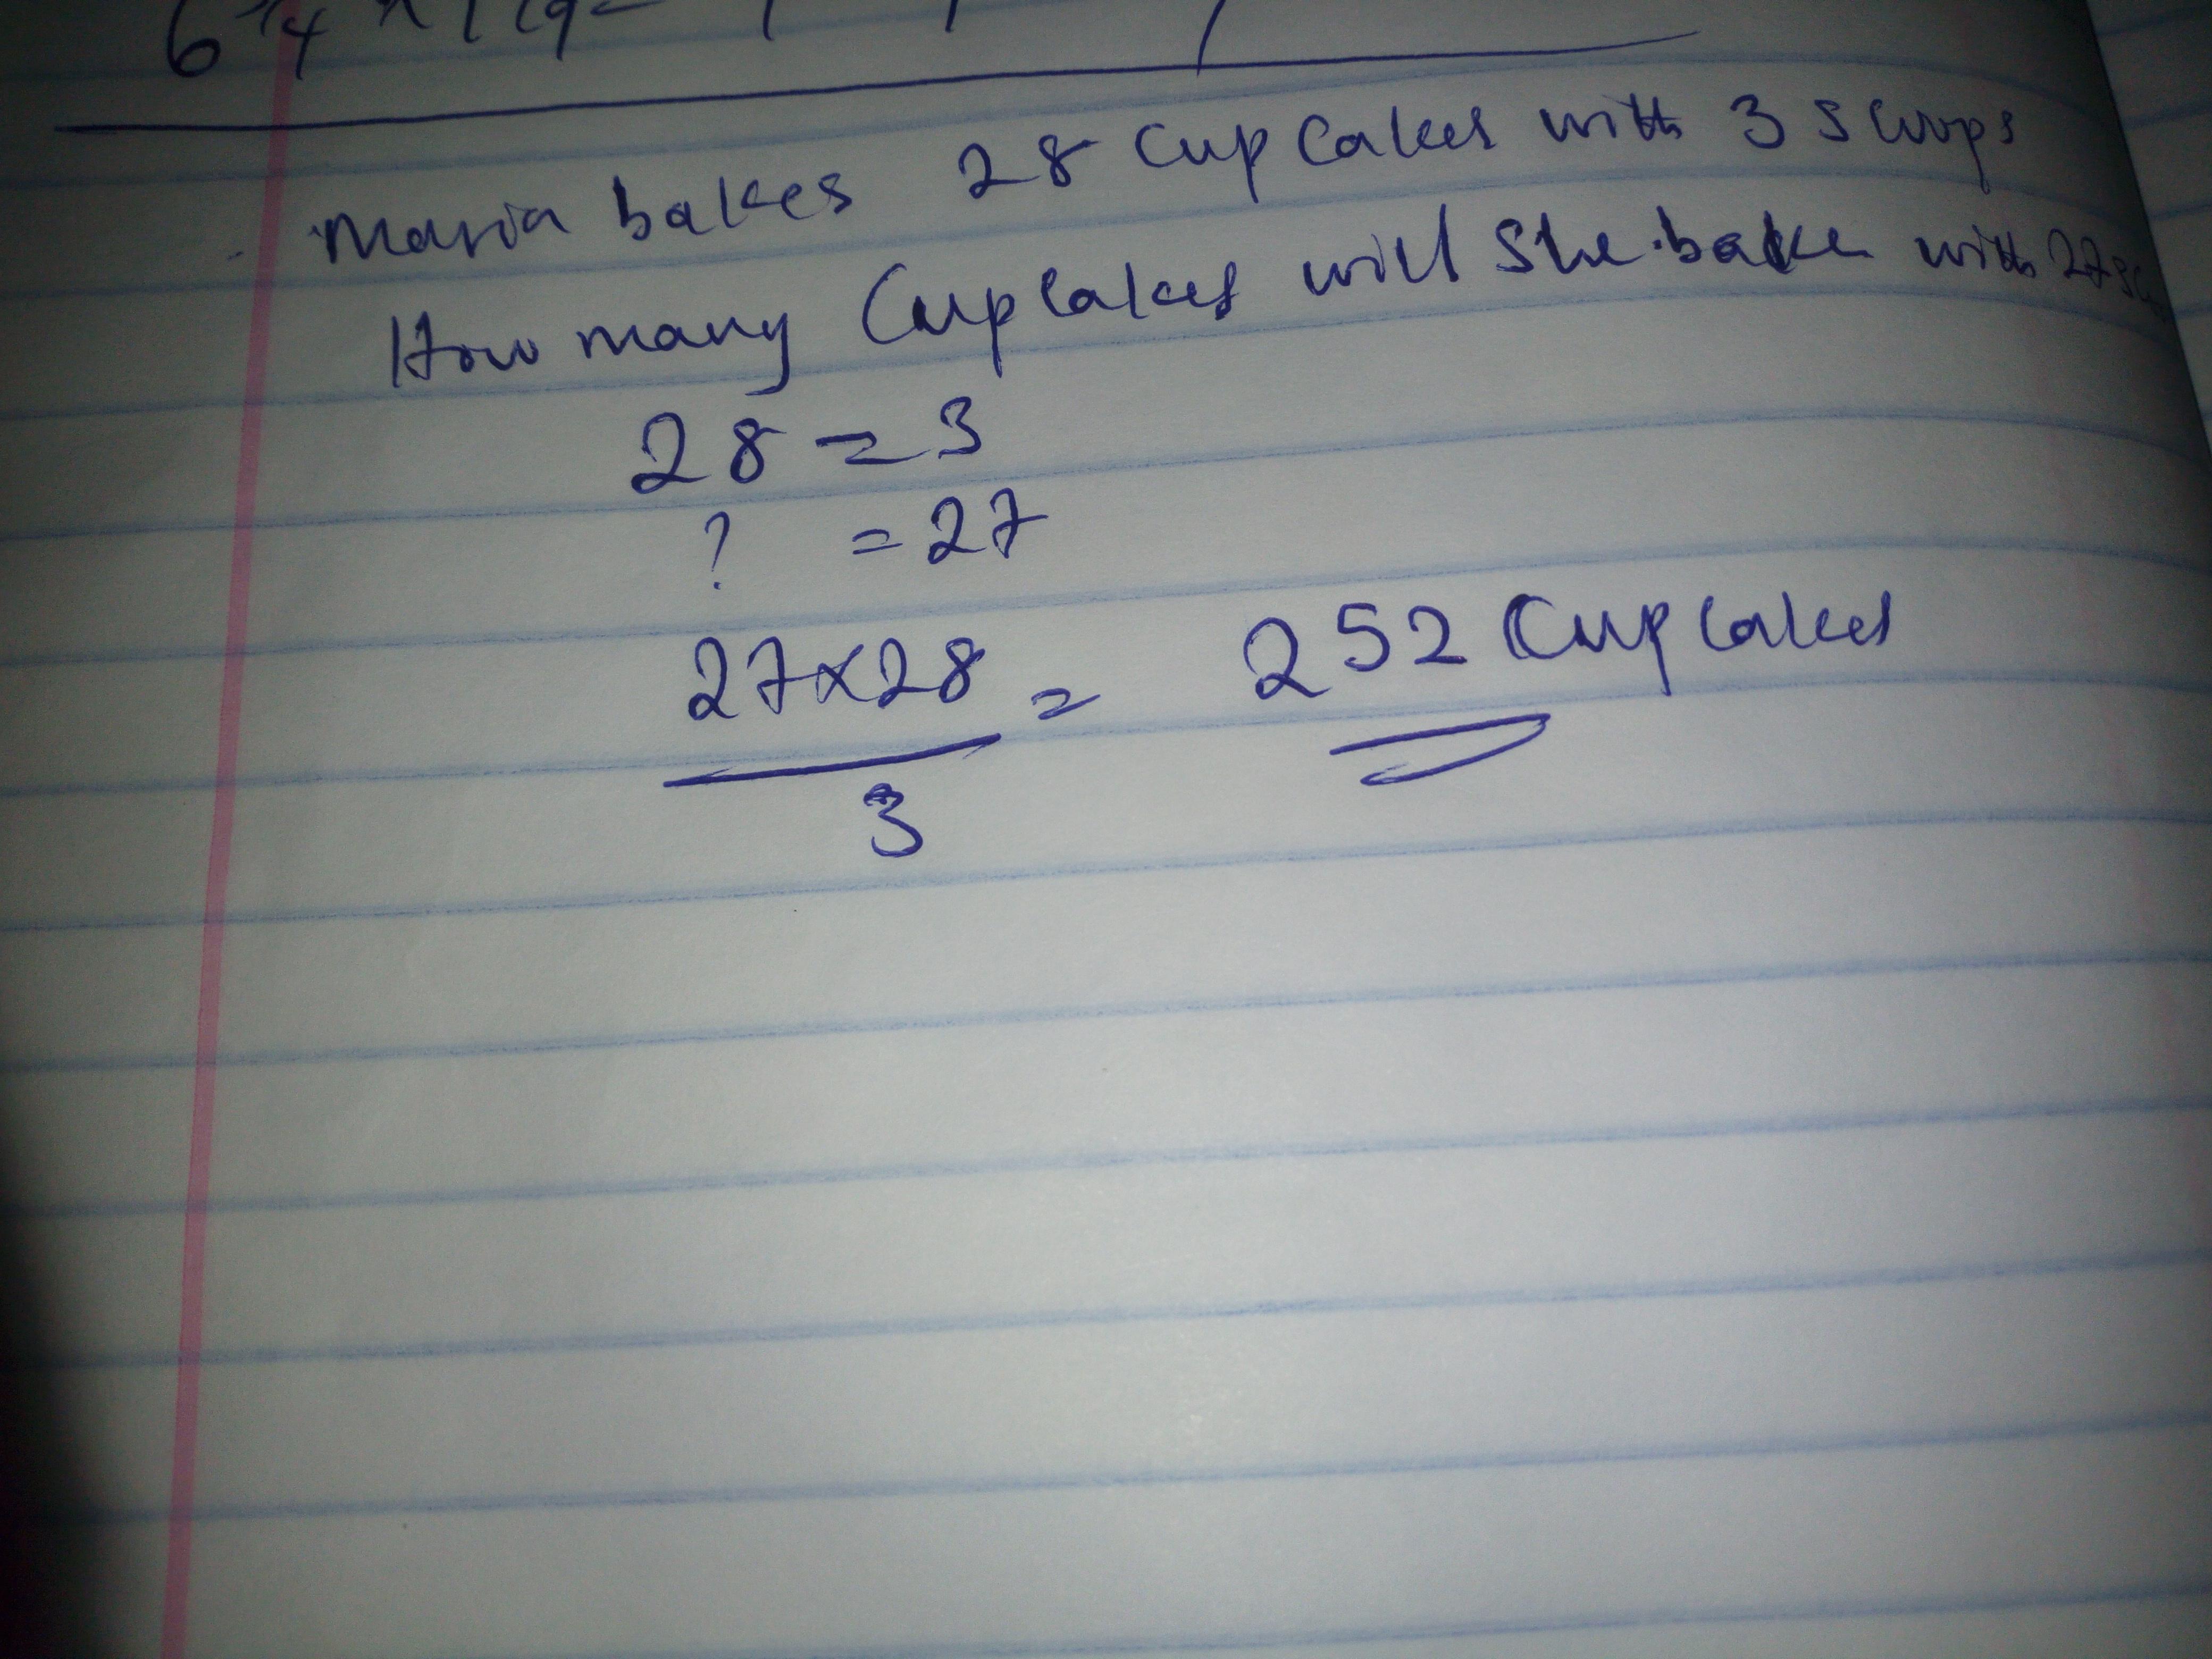 Maria bakes 28 Cup Cakes with 3 scoops
How many Cupcakes will she bake with 27
28 = 3
? = 27
27x28 = 252 Cup Cakes
3